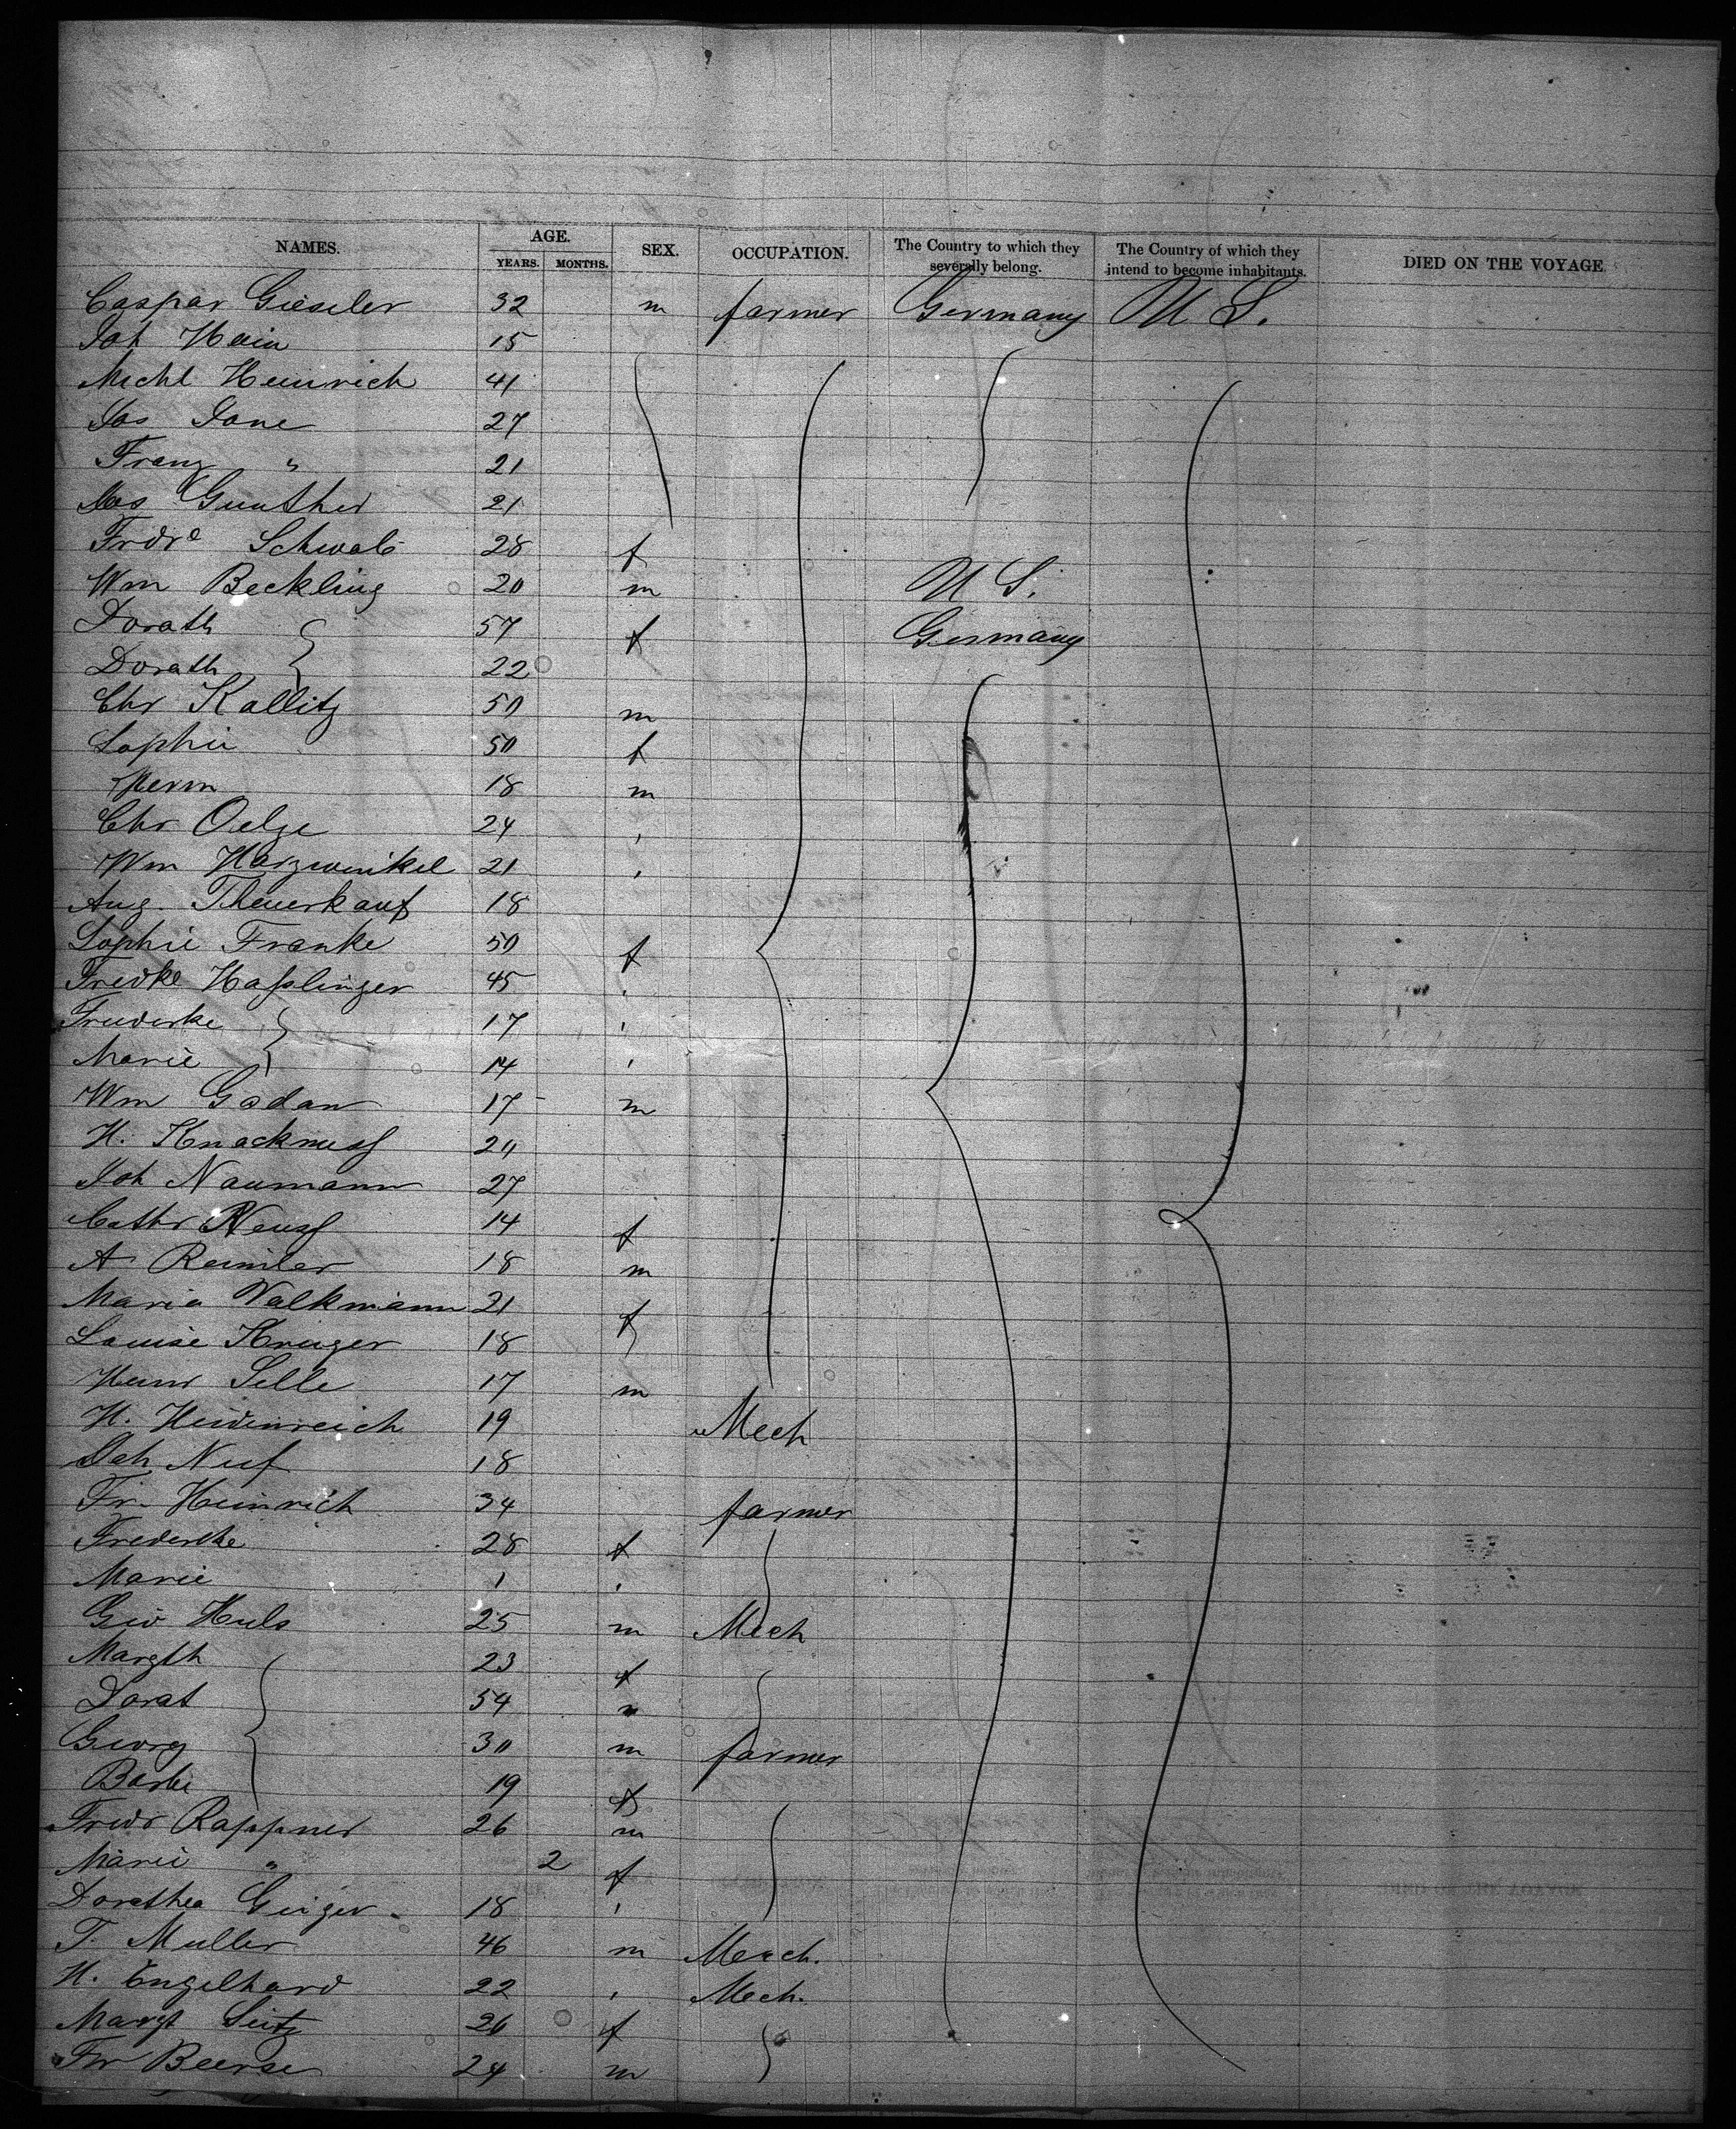 NAMES. AGE. SEX. OCCUPATION. The Country to which they severally belong. The Country of which they intend to become inhabitants. DIED ON THE VOYAGE.
YEARS. MONTHS.
Caspar Gieseler 32 m farmer Germany U S.
Joh Hein 15
Michl Heinrich 41
Jos Jane 27
Franz " 21
Jos Gunther 21
Frdre Schwab 28 f
Wm Beckling 20 m U S.
Dorath 57 f Germany
Dorath 22
Chr Kallitz 50 m
Sophie 50 f
Herm 18 m
Chr Oelze 24 "
Wm Harzwinkel 21 "
Aug. Theuerkauf 18
Sophie Franke 50 f
Fredke Hasslinger 45 "
Friederke 17 "
Marie 14 "
Wm Gadau 17 m
H. Knacknuss 20
Joh Naumann 27
Cathr Neuss 14 f
A Reimler 18 m
Maria Valkmann 21 f
Louise Kruger 18
Heinr Selle 17 m
H. Heidenreich 19 Mech
Joh Nuss 18
Fr. Heinrich 34 farmer
Frederike 28 f
Marie 1 "
Geo Huls 25 m Mech
Margth 23 f
Dorat 54 "
Georg 30 m farmer
Barbe 19 f
Fredr Rappner 26 m
Marie " 2 f
Dorathea Geiger 18 "
T. Muller 46 m Merch.
H. Engelhard 22 " Mech.
Margt Seitz 26 f
Fr Beerse 24 m